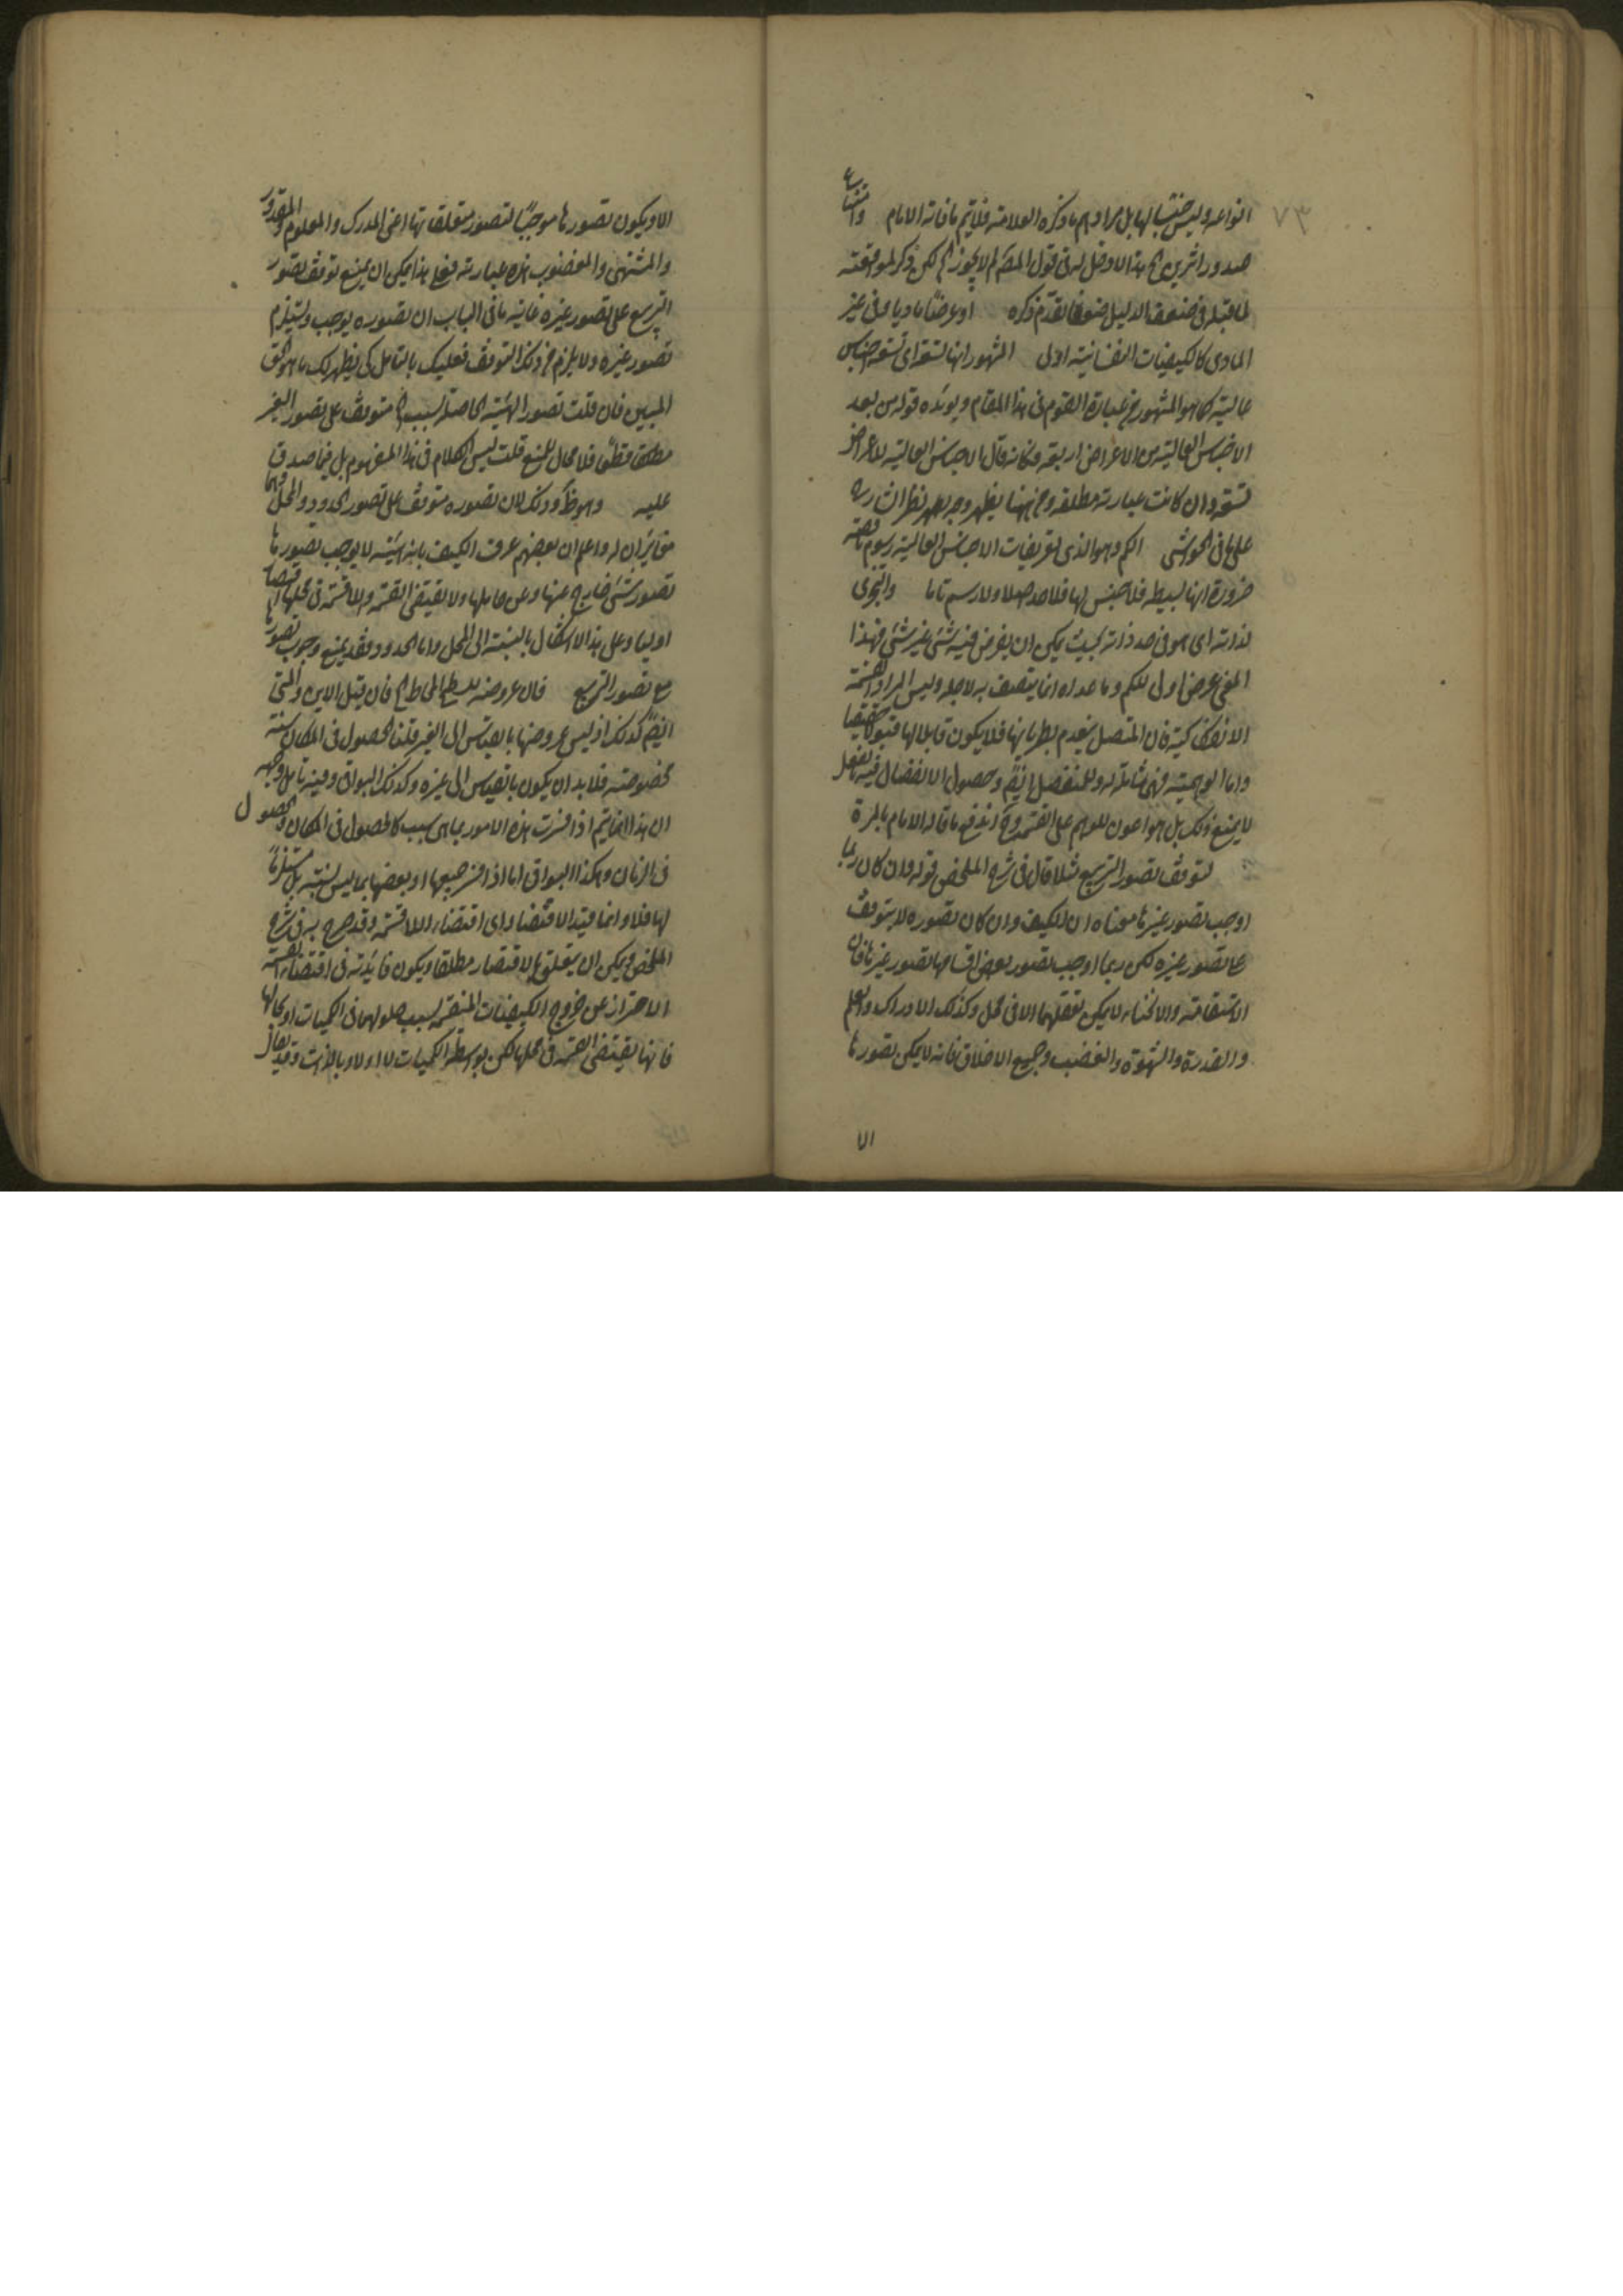 ٧٣
انواعه وليس جنسا لها بل مرادهم ما ذكره العلامة فلا يتم ما قاله الامام وامتناع
صدور اثرين الخ هذا لا دخل له في قول المصنف لم لا يجوز الخ لكن ذكر لموافقته
لما قبله في ضعف الدليل ضعفا تقدم ذكره او عرضا ماديا في غير
المادى كالكيفيات النفسانية اولى المشهور انها تسعة اى تسعة اجناس
عالية كما هو المشهور في عبارة القوم في هذا المقام ويؤيده قوله من بعد
الاجناس العالية من الاعراض اربعة فكانه قال الاجناس العالية للاعراض
تسعة وان كانت عبارته مطلقة ومن ههنا يظهر وجه نظر الشارح
على ما في الحواشى الكم وهو الذى تعريفات الاجناس العالية رسوم ناقصة
ضرورة انها بسيطة فلا جنس لها فلا حد لها اصلا ولا رسم تاما والتجزى
لذاته اى هو في حد ذاته بحيث يمكن ان يفرض فيه شئ غير شئ فهذا
المعنى عرض اولى للكم وما عداه انما يتصف به لاجله وليس المراد القسمة
الانفكاكية فان المتصل ينعدم بطريانها فلا يكون قابلا لها قبولا حقيقيا
واما الوهمية فهى شاملة له وللمنفصل ايضا وحصول الانفصال فيه بالفعل
لا يمنع ذلك بل هو اعون للوهم على القسمة وح اندفع ما قاله الامام بالمرة
لتوقف تصور التربيع مثلا قال في شرح الملخص قوله وان كان ربما
اوجب تصور غيرها معناه ان الكيف وان كان تصوره لا يتوقف
على تصور غيره لكن ربما اوجب تصور بعض اقسامها تصور غيرها فان
الاستقامة والانحناء لا يمكن تعقلهما الا في محل وكذلك الادراك والعلم
والقدرة والشهوة والغضب وجميع الاخلاق فانه لا يمكن تصورها
الا
الا ويكون تصورها موجبا لتصور متعلقاتها اعنى المدرك والمعلوم والمقدور
والمشتهى والمغضوب هذه عبارته فعلى هذا يمكن ان يمنع توقف تصور
التربيع على تصور غيره غايته ما في الباب ان تصوره يوجب ويستلزم
تصور غيره ولا يلزم من ذلك التوقف فعليك بالتامل كى يظهر لك ما هو الحق
المبين فان قلت تصور الهيئة الحاصلة بسبب الخ متوقف على تصور الغير
مطلقا قطعا فلا مجال للمنع قلت ليس الكلام في هذا المفهوم بل فيما صدق
عليه وهو ظ وذلك لان تصوره متوقف على تصور الحدود والمحل وهما
مغايران له واعلم ان بعضهم عرف الكيف بانه هيئة لا يوجب تصورها
تصور شئ خارج عنها وعن حاملها ولا تقتضى القسمة واللاقسمة في محلها اقتضاء
اوليا وعلى هذا لا اشكال بالنسبة الى المحل واما الحدود فقد يمنع وجوب تصورها
مع تصور التربيع فان عروضه للسطح المحاط الخ فان قيل الاين والمتى
ايضا كذلك اذ ليس عروضها بالقياس الى الغير قلنا الحصول في المكان نسبة
مخصوصة فلا بد ان يكون بالقياس الى غيره وكذلك البواقى وفيه تامل وجهه
ان هذا انما يتم اذا فسرت هذه الامور بما هى نسب كالحصول في المكان والحصول
في الزمان وهكذا البواقى اما اذا فسر جميعها او بعضها بما ليس نسبة بل مستلزما
لها فلا وانما قيد الاقتضاء اى اقتضاء اللاقسمة وقد صرح به في شرح
الملخص ويمكن ان يتعلق بالاقتضاء مطلقا ويكون فائدته في اقتضاء القسمة
الاحتراز عن خروج الكيفيات المنقسمة بسبب حلولها في الكميات او محالها
فانها تقتضى القسمة في محلها لكن بواسطة الكميات لا اولا وبالذات وقد يقال